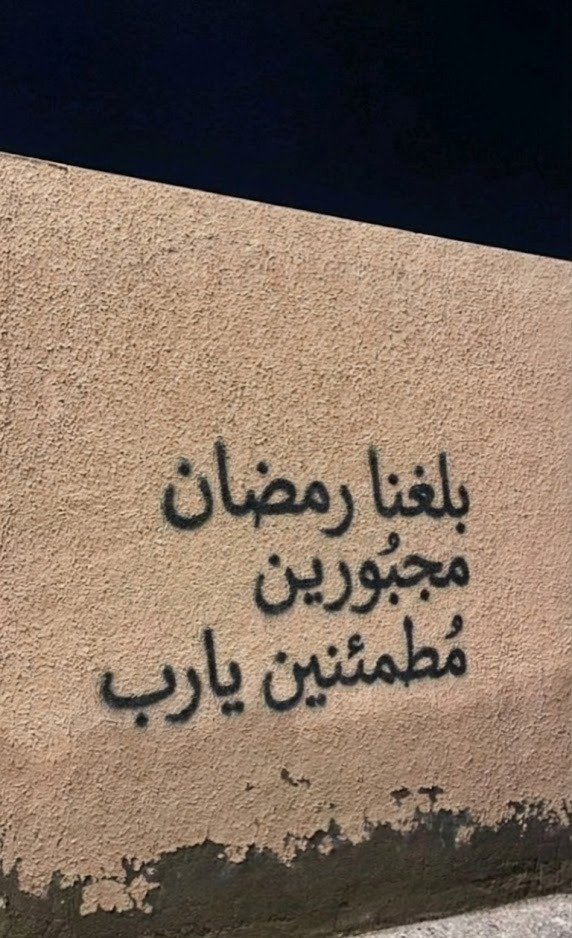 بلغنا رمضان
مجبُورين
مُطمئنين يارب